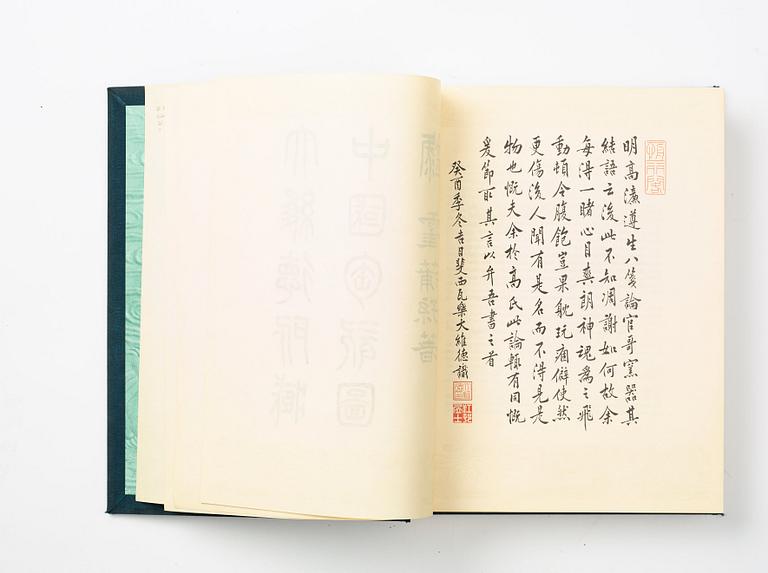 明高濂遵生八箋論官哥窯器其
結語云後此不知凋謝如何故余
每得一睹心目爽朗神魂為之飛
動頓令腹飽豈果耽玩痼僻使然
更傷後人聞有是名而不得見是
物也慨夫余於高氏此論輒有同慨
爰節取其言以弁吾書之首
癸酉季冬吉日斐西瓦樂大維德識